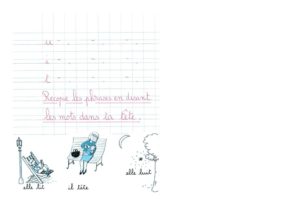 u
e
l
Recopie les phrases en disant
les mots dans ta tête.
elle lit
il tète
elle luit